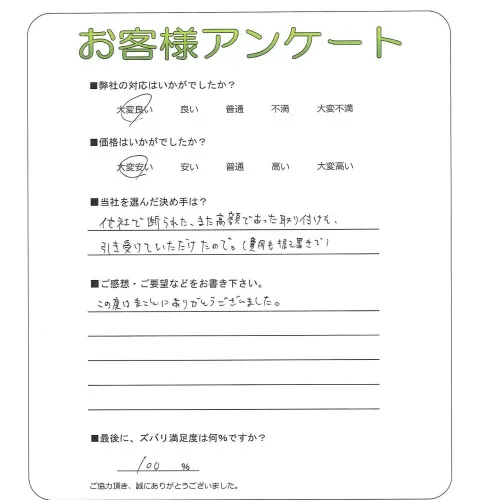 お客様アンケート
■弊社の対応はいかがでしたか？
大変良い 良い 普通 不満 大変不満
■価格はいかがでしたか？
大変安い 安い 普通 高い 大変高い
■当社を選んだ決め手は？
他社で断られた、また高額であった取り付けも、
引き受けていただけたので。(費用も据え置きで)
■ご感想・ご要望などをお書き下さい。
この度はまことにありがとうございました。
■最後に、ズバリ満足度は何%ですか？
100 %
ご協力頂き、誠にありがとうございました。